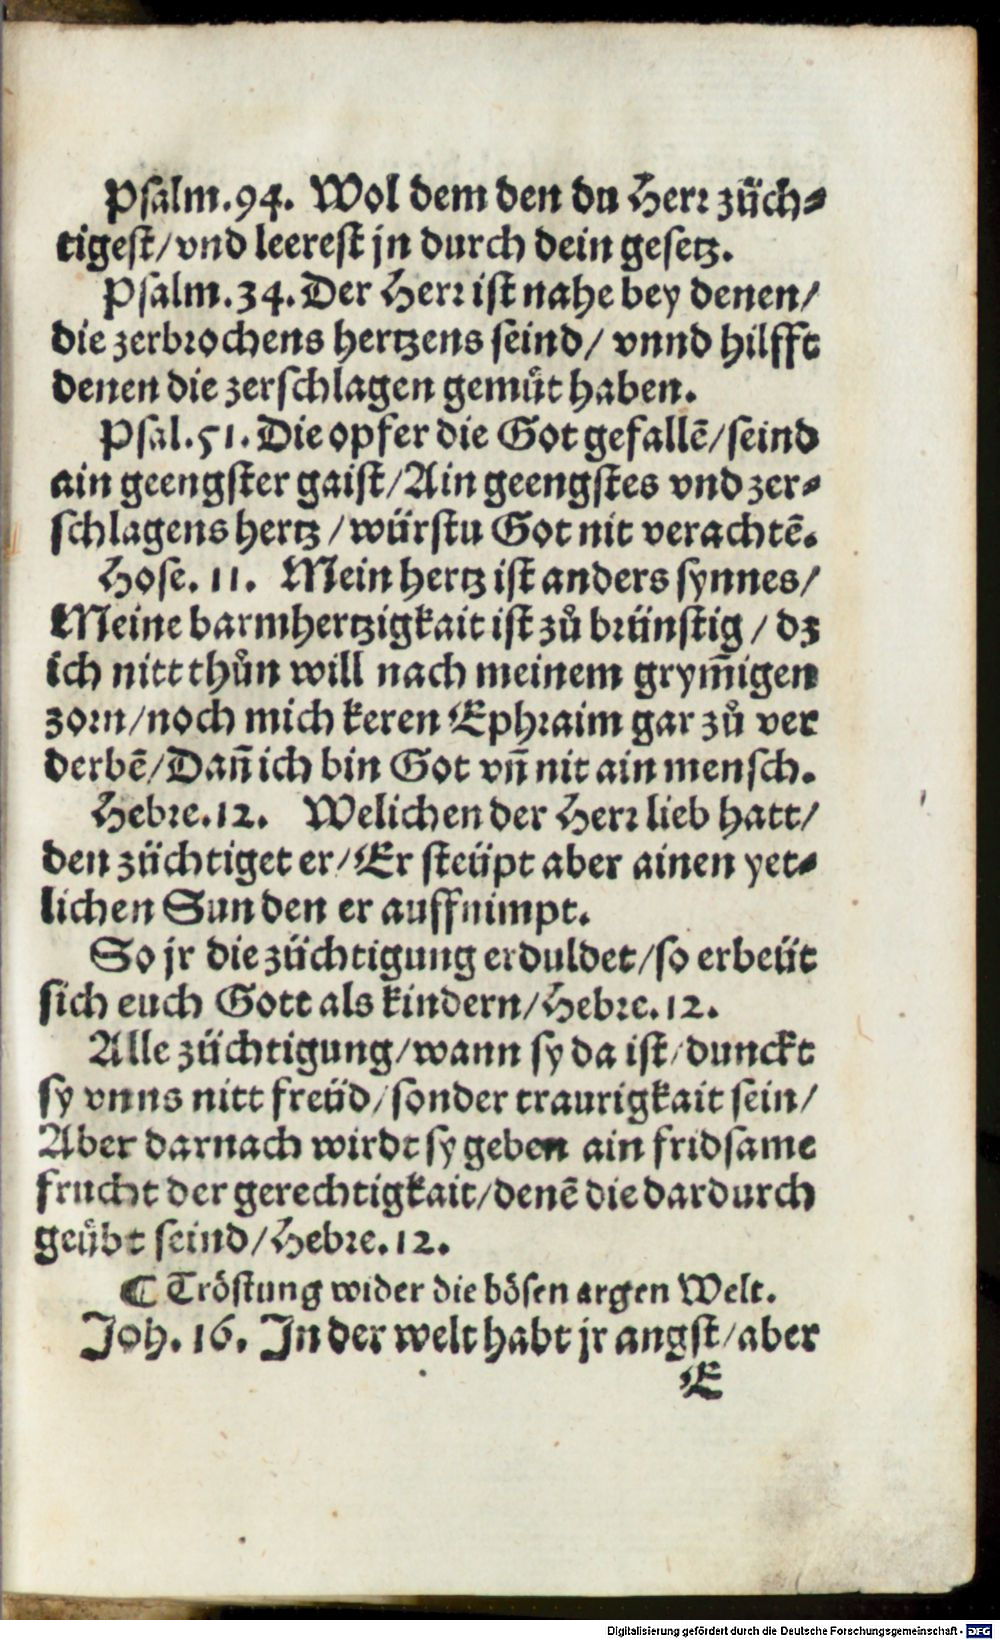 Psalm.94. Wol dem den du Herr züch⸗
tigest/vnd leerest jn durch dein gesetz.
Psalm.34.Der Herr ist nahe bey denen/
die zerbrochens hertzens seind/ vnnd hilfft
denen die zerschlagen gemuͤt haben.
Psal.51.Die opfer die Got gefallē/seind
ain geengster gaist/Ain geengstes vnd zer⸗
schlagens hertz/würstu Got nit verachtē.
Hose. 11. Mein hertz ist anders synnes/
Meine barmhertzigkait ist zů brünstig/ dz
ich nitt thůn will nach meinem grym̄igen
zorn/noch mich keren Ephraim gar zů ver
derbē/Dan̄ ich bin Got vn̄ nit ain mensch.
Hebre.12. Welichen der Herr lieb hatt/
den züchtiget er/Er steüpt aber ainen yet⸗
lichen Sun den er auffnimpt.
So jr die züchtigung erduldet/so erbeüt
sich euch Gott als kindern/Hebre.12.
Alle züchtigung/wann sy da ist/dunckt
sy vnns nitt freüd/sonder traurigkait sein/
Aber darnach wirdt sy geben ain fridsame
frucht der gerechtigkait/denē die dardurch
geuͤbt seind/Hebre.12.
¶ Tröstung wider die bösen argen Welt.
Joh. 16. In der welt habt jr angst/aber
E
Digitalisierung gefördert durch die Deutsche Forschungsgemeinschaft - DFG